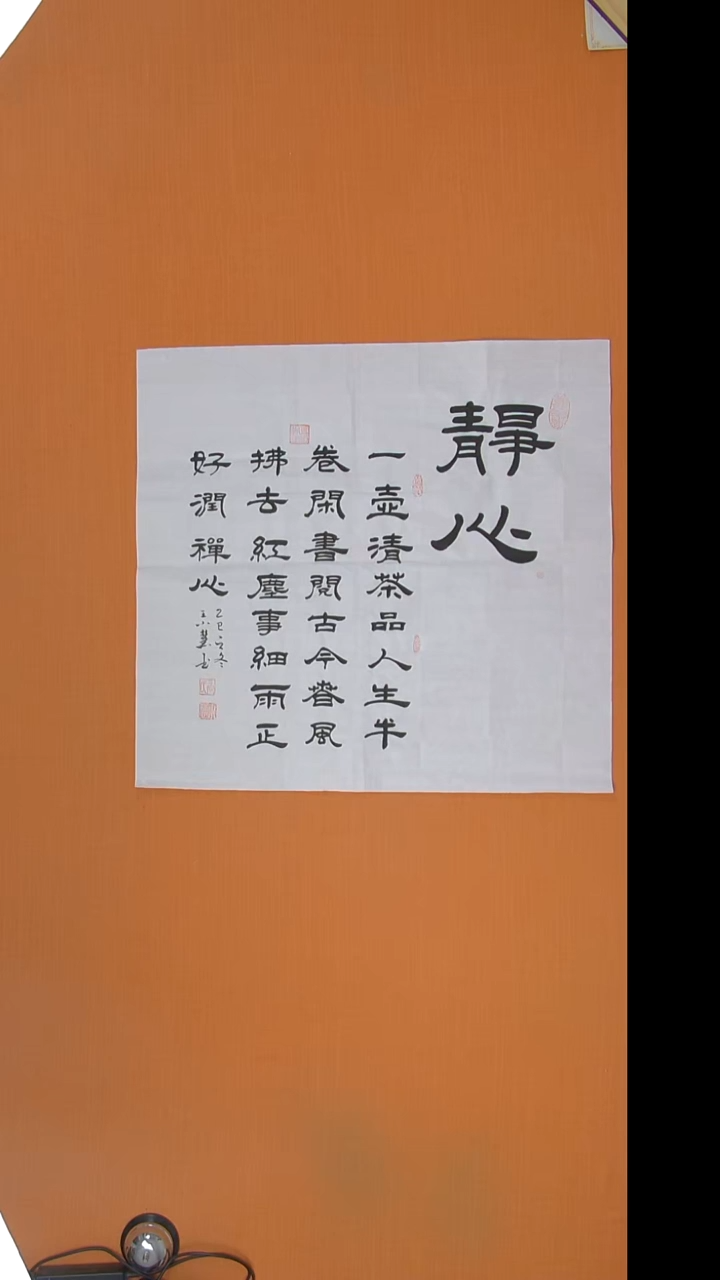 靜心
一壺清茶品人生半
卷閑書閱古今春風
拂去紅塵事細雨正
好潤禪心
乙巳之冬